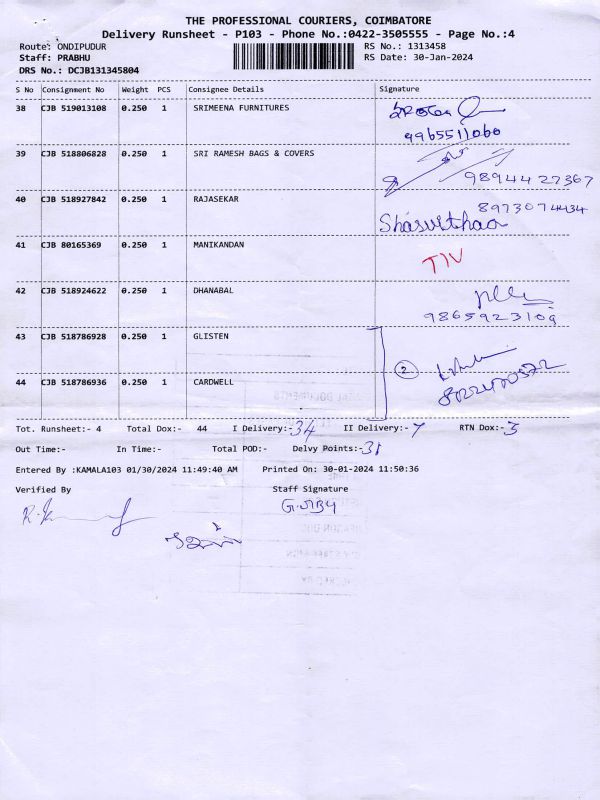 THE PROFESSIONAL COURIERS, COIMBATORE
Delivery Runsheet - P103 - Phone No.:0422-3505555 - Page No.:4
Route: ONDIPUDUR RS No.: 1313458
Staff: PRABHU RS Date: 30-Jan-2024
DRS No.: DCJB131345804
S No Consignment No Weight PCS Consignee Details Signature
38 CJB 519013108 0.250 1 SRIMEENA FURNITURES
9965511060
39 CJB 518806828 0.250 1 SRI RAMESH BAGS & COVERS
9894427367
40 CJB 518927842 0.250 1 RAJASEKAR 8973074434
41 CJB 80165369 0.250 1 MANIKANDAN TIV
42 CJB 518924622 0.250 1 DHANABAL
9865923109
43 CJB 518786928 0.250 1 GLISTEN
2
44 CJB 518786936 0.250 1 CARDWELL
Tot. Runsheet:- 4 Total Dox:- 44 I Delivery:- 34 II Delivery:- 7 RTN Dox:- 3
Out Time:- In Time:- Total POD:- Delvy Points:- 31
Entered By :KAMALA103 01/30/2024 11:49:40 AM Printed On: 30-01-2024 11:50:36
Verified By Staff Signature